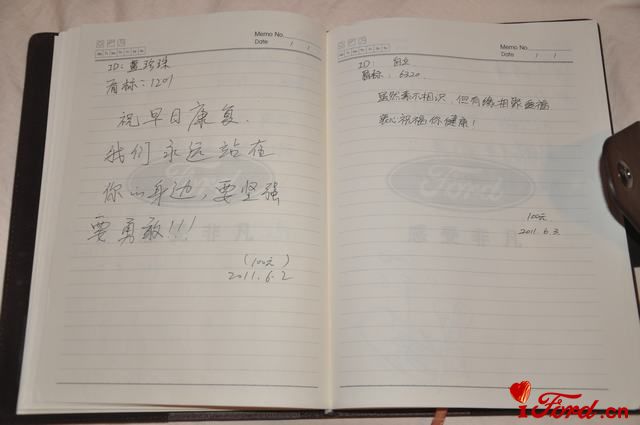 Memo No.
Date / /
ID: 蓝珍珠
车标: 1201
祝早日康复.
我们永远站在
你的身边, 要坚强
要勇敢!!!
(100元)
2011.6.2
Memo No.
Date / /
ID:
车标: 6320
虽然素不相识, 但有缘相聚
衷心祝福你健康!
Ford
感受非凡
100元
2011.6.3
iFord.cn